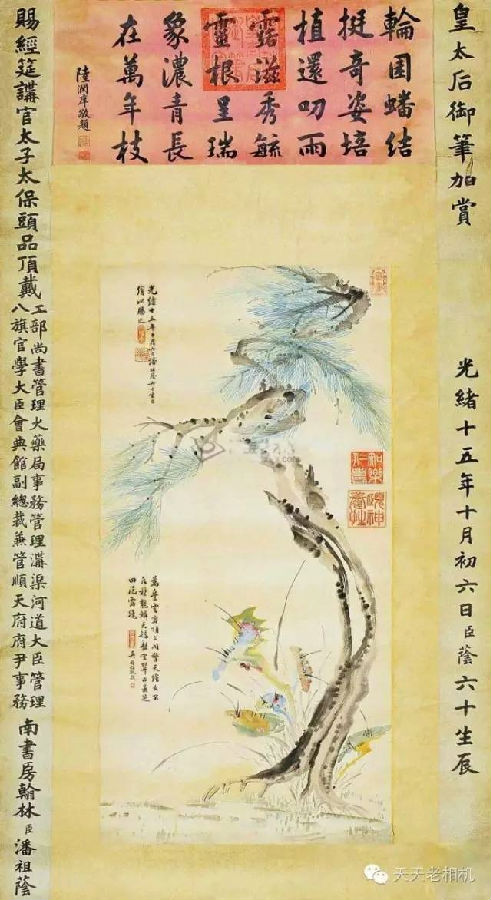 皇太后御筆加賞
光緒十五年十月初六日臣蔭六十生辰
輪囷蟠結
挺奇姿培
植還叨雨
露滋秀毓
靈根呈瑞
象濃青長
在萬年枝
陸潤庠敬題
賜經筵講官太子太保頭品頂戴
工部尚書管理火藥局事務管理溝渠河道大臣管理
八旗官學大臣會典館副總裁兼管順天府府尹事務
南書房翰林臣潘祖蔭
天天老相机